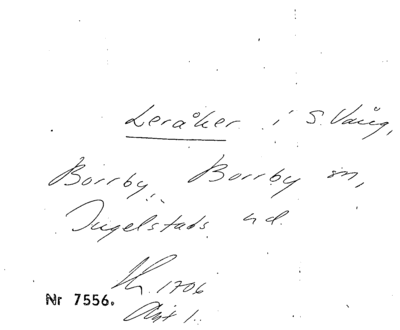 Leråker i S. Vång,
Borrby, Borrby sn,
Ingelstads hd.
1706
Nr 7556.
Akt 1.